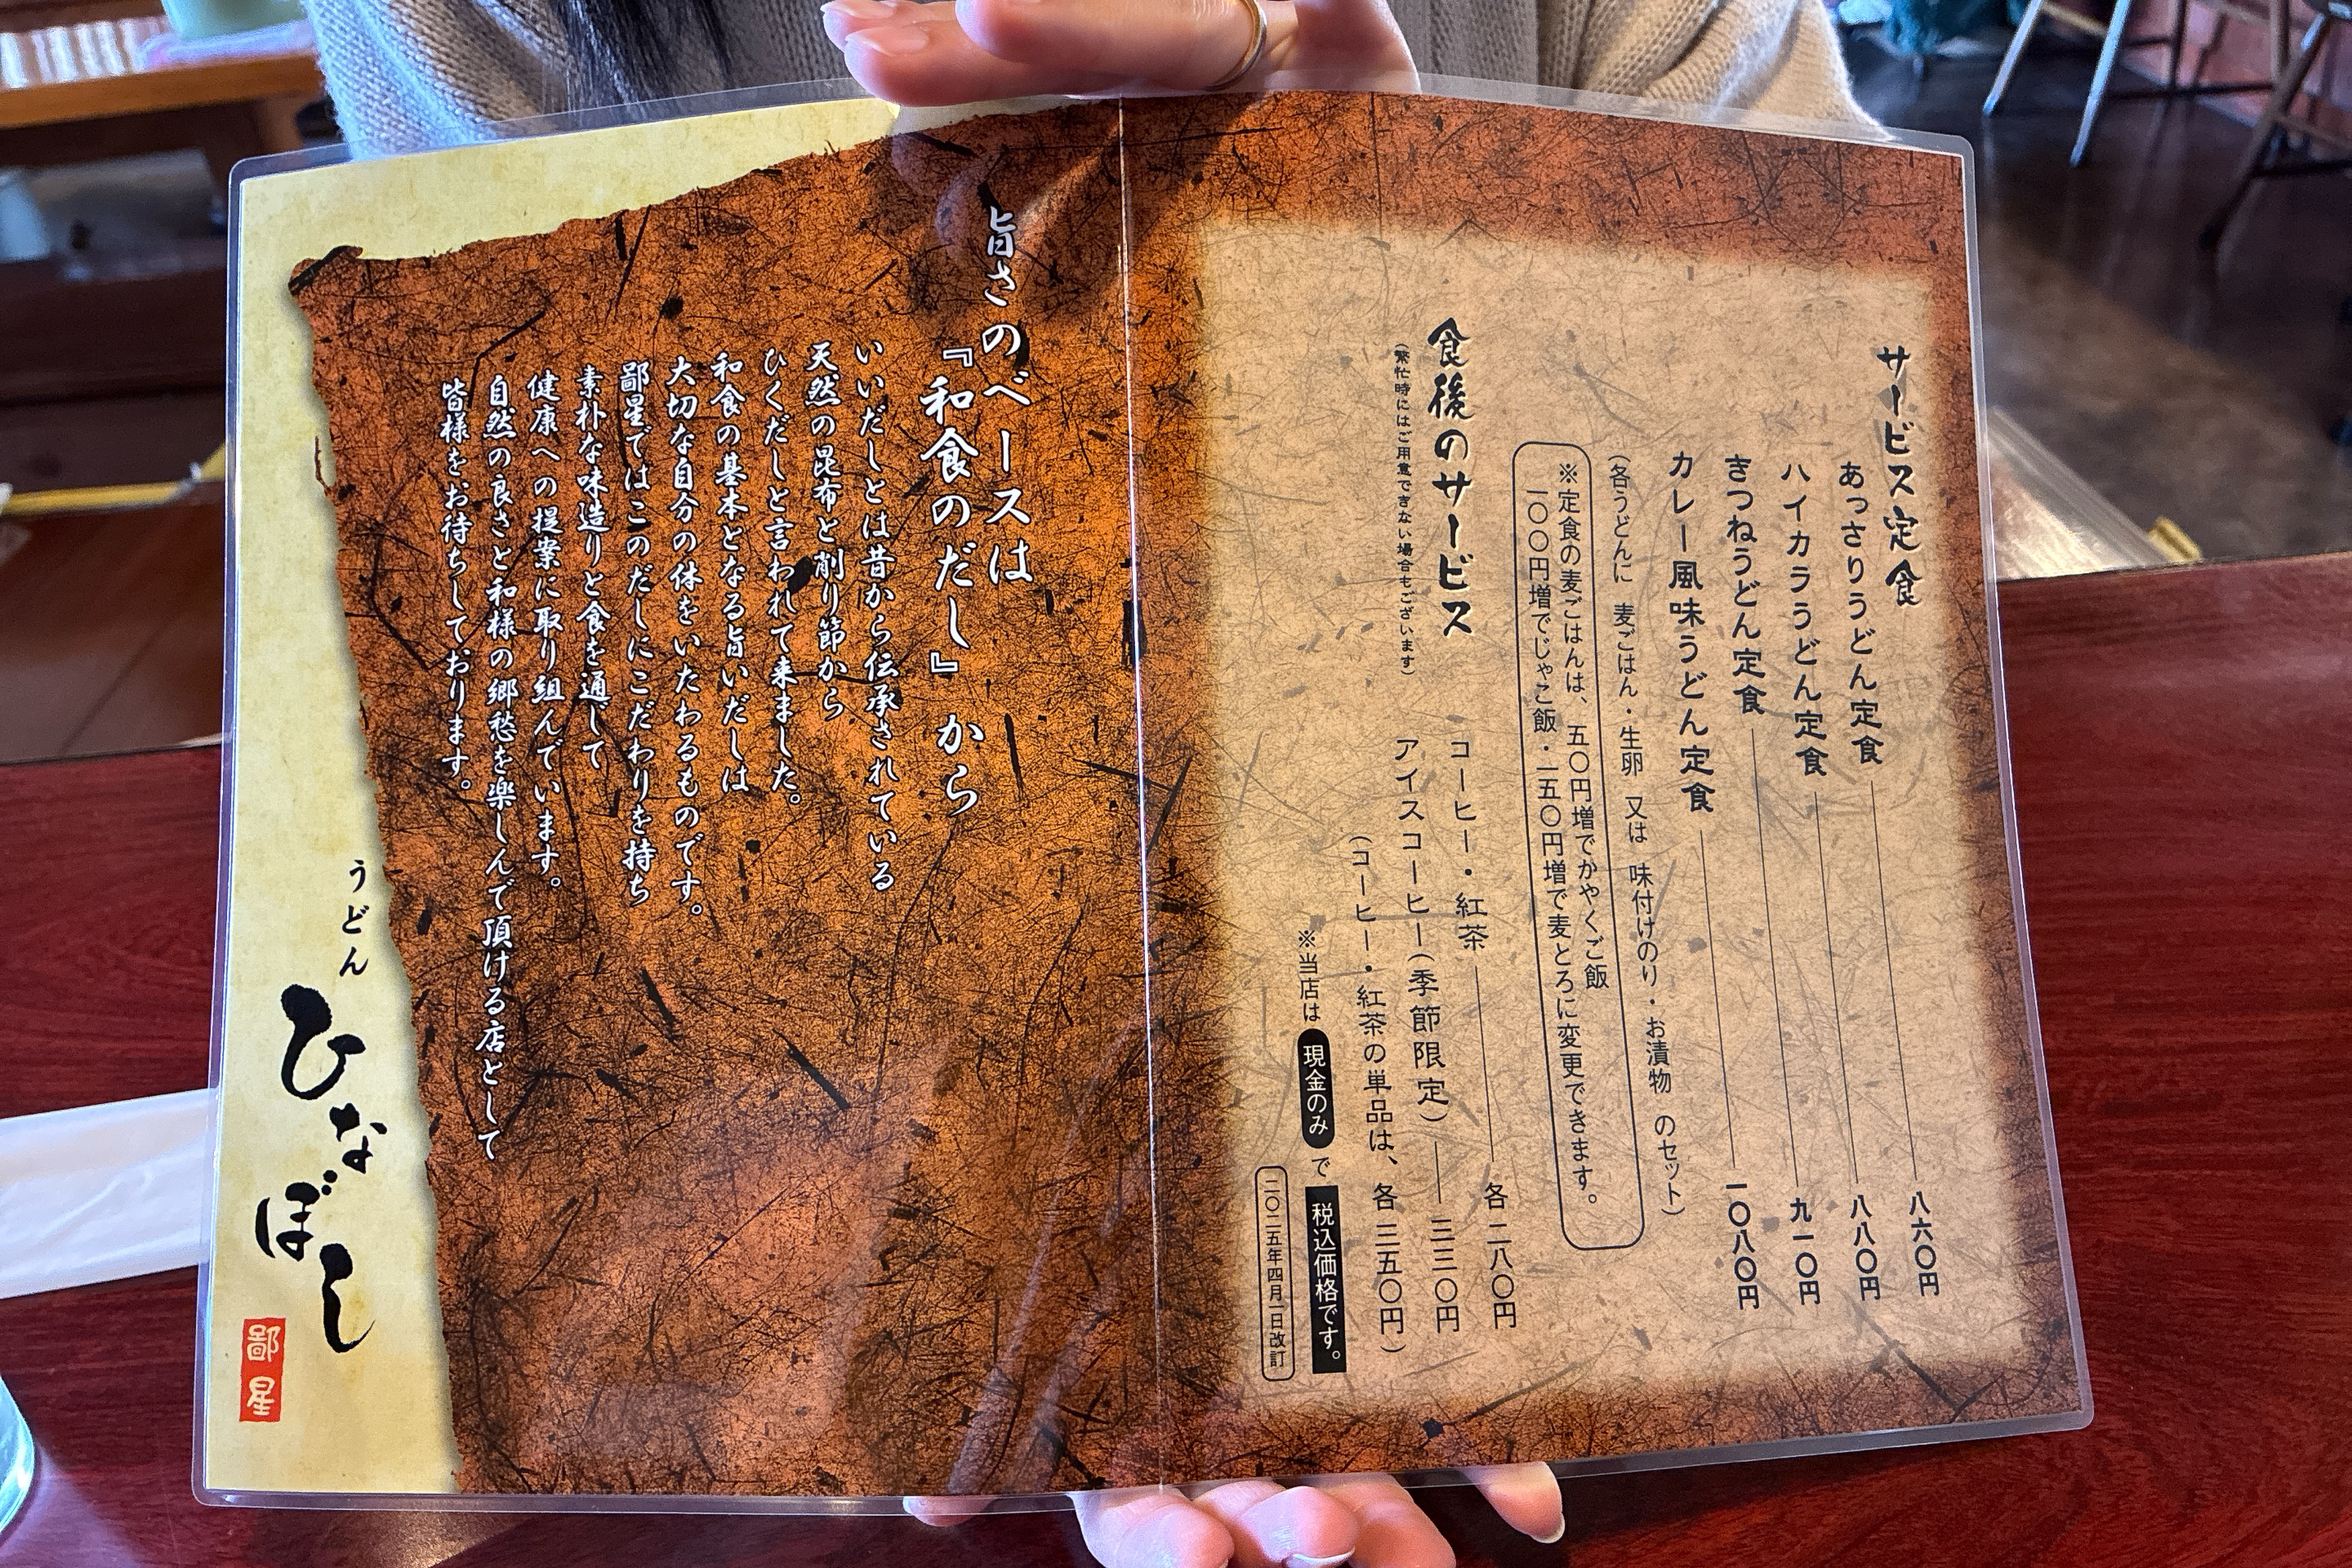 サービス定食
あっさりうどん定食 八六〇円
ハイカラうどん定食 八八〇円
きつねうどん定食 九一〇円
カレー風味うどん定食 一〇八〇円
(各うどんに 麦ごはん・生卵 又は 味付けのり・お漬物 のセット)
※定食の麦ごはんは、五〇円増でかやくご飯
一〇〇円増でじゃこ飯・一五〇円増で麦とろに変更できます。
食後のサービス
(繁忙時にはご用意できない場合もございます)
コーヒー・紅茶 各二八〇円
アイスコーヒー(季節限定) 三三〇円
(コーヒー・紅茶の単品は、各三五〇円)
※当店は 現金のみ で 税込価格です。
二〇二五年四月一日改訂
旨さのベースは
『和食のだし』から
いいだしとは昔から伝承されている
天然の昆布と削り節から
ひくだしと言われて来ました。
和食の基本となる旨いだしは
大切な自分の体をいたわるものです。
鄙星ではこのだしにこだわりを持ち
素朴な味造りと食を通して
健康への提案に取り組んでいます。
自然の良さと和様の郷愁を楽しんで頂ける店として
皆様をお待ちしております。
うどん
ひなぼし
鄙星